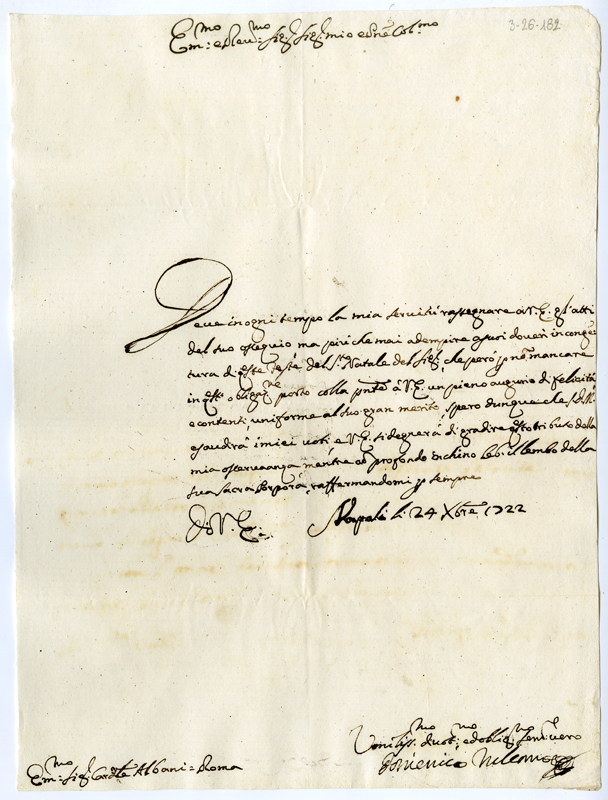 3-26-182
Em:mo e Rev:mo Sig:r Sig:r mio e Pne Col:mo
Deve in ogni tempo la mia servitù rassegnare à V.E. gl'atti
del suo ossequio ma più che mai adempire a suoi doveri in conge
tura di q.ste feste del S.to Natale del Sig.re, che però p non mancare
in q.sta obligaz.ne porto colla pnte à V.E. un pieno augurio di felicità
e contenti, uniforme al suo gran merito, spero dunque che S.D.M.
esaudirà i miei voti e V.E. si degnerà di gradire q.sto tributo della
mia osservanza mentre con profondo inchino bacio il lembo della
sua sacra Porpora, raffermandomi p sempre
Di V.E.
Napoli li 24 Xbre 1722
Umiliss:mo divot:mo ed oblig:mo ser.re vero
Domenico
Em:mo Sig:r Card:le Albani = Roma